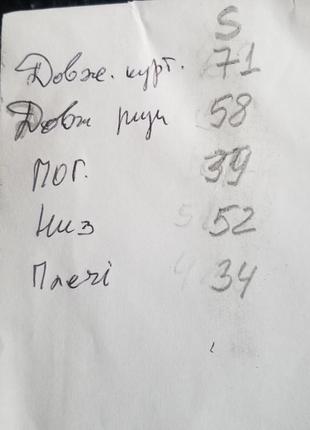 S
Довж. курт. 71
Довж рук 58
ПОГ. 39
Низ 52
Плечі 34